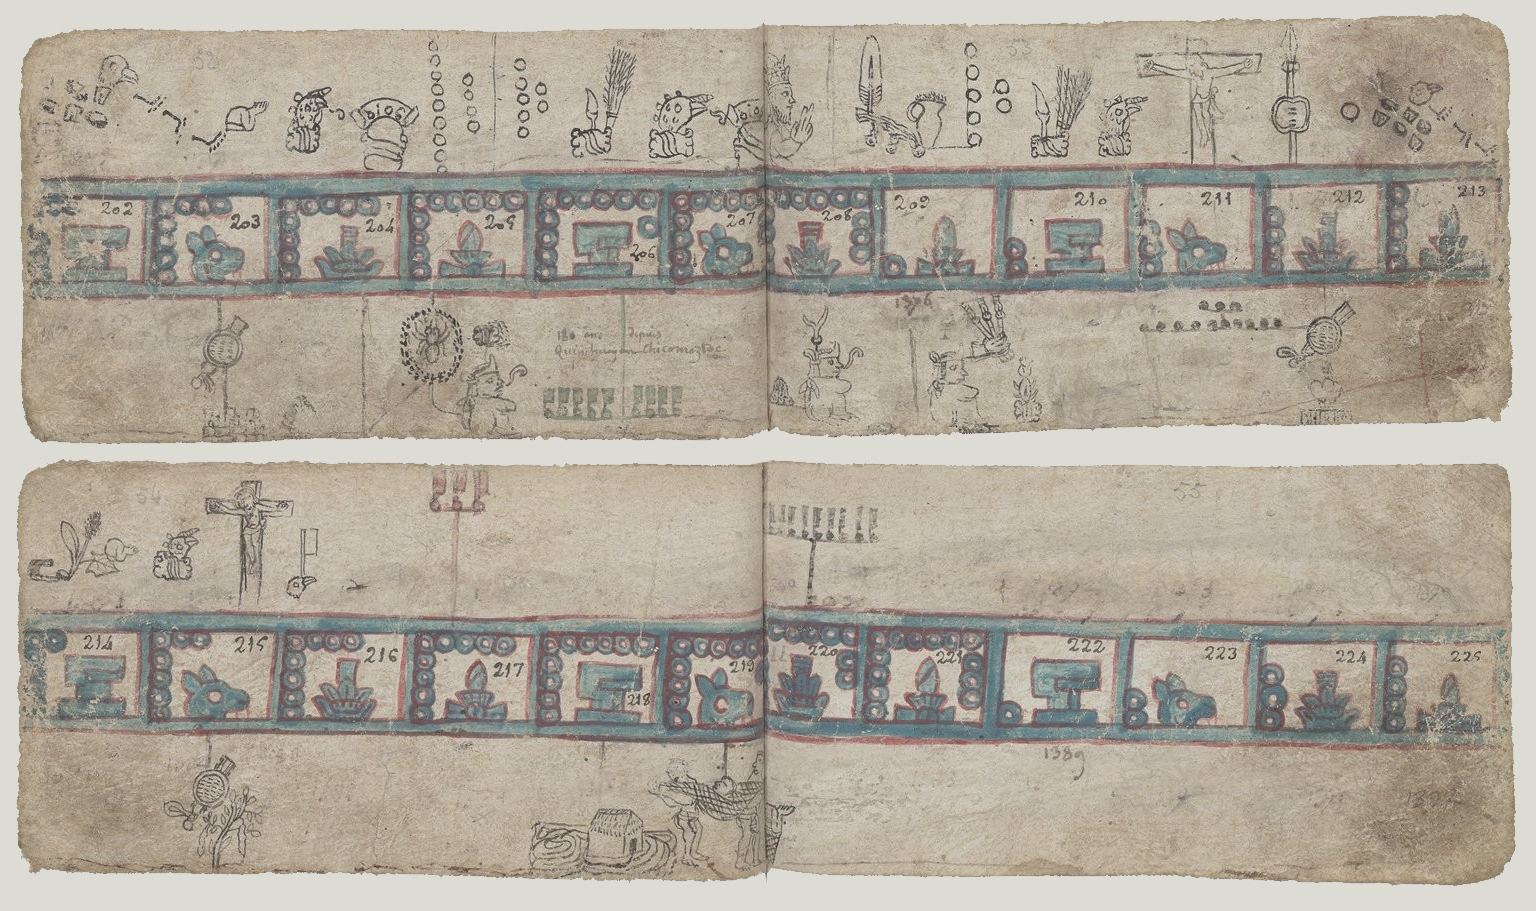 52
53
202
203
204
205
206
207
208
209
210
211
212
213
1376
180 ans depuis
Quinehuayan Chicomoztoc
54
55
214
215
216
217
218
219
220
221
222
223
224
225
1389